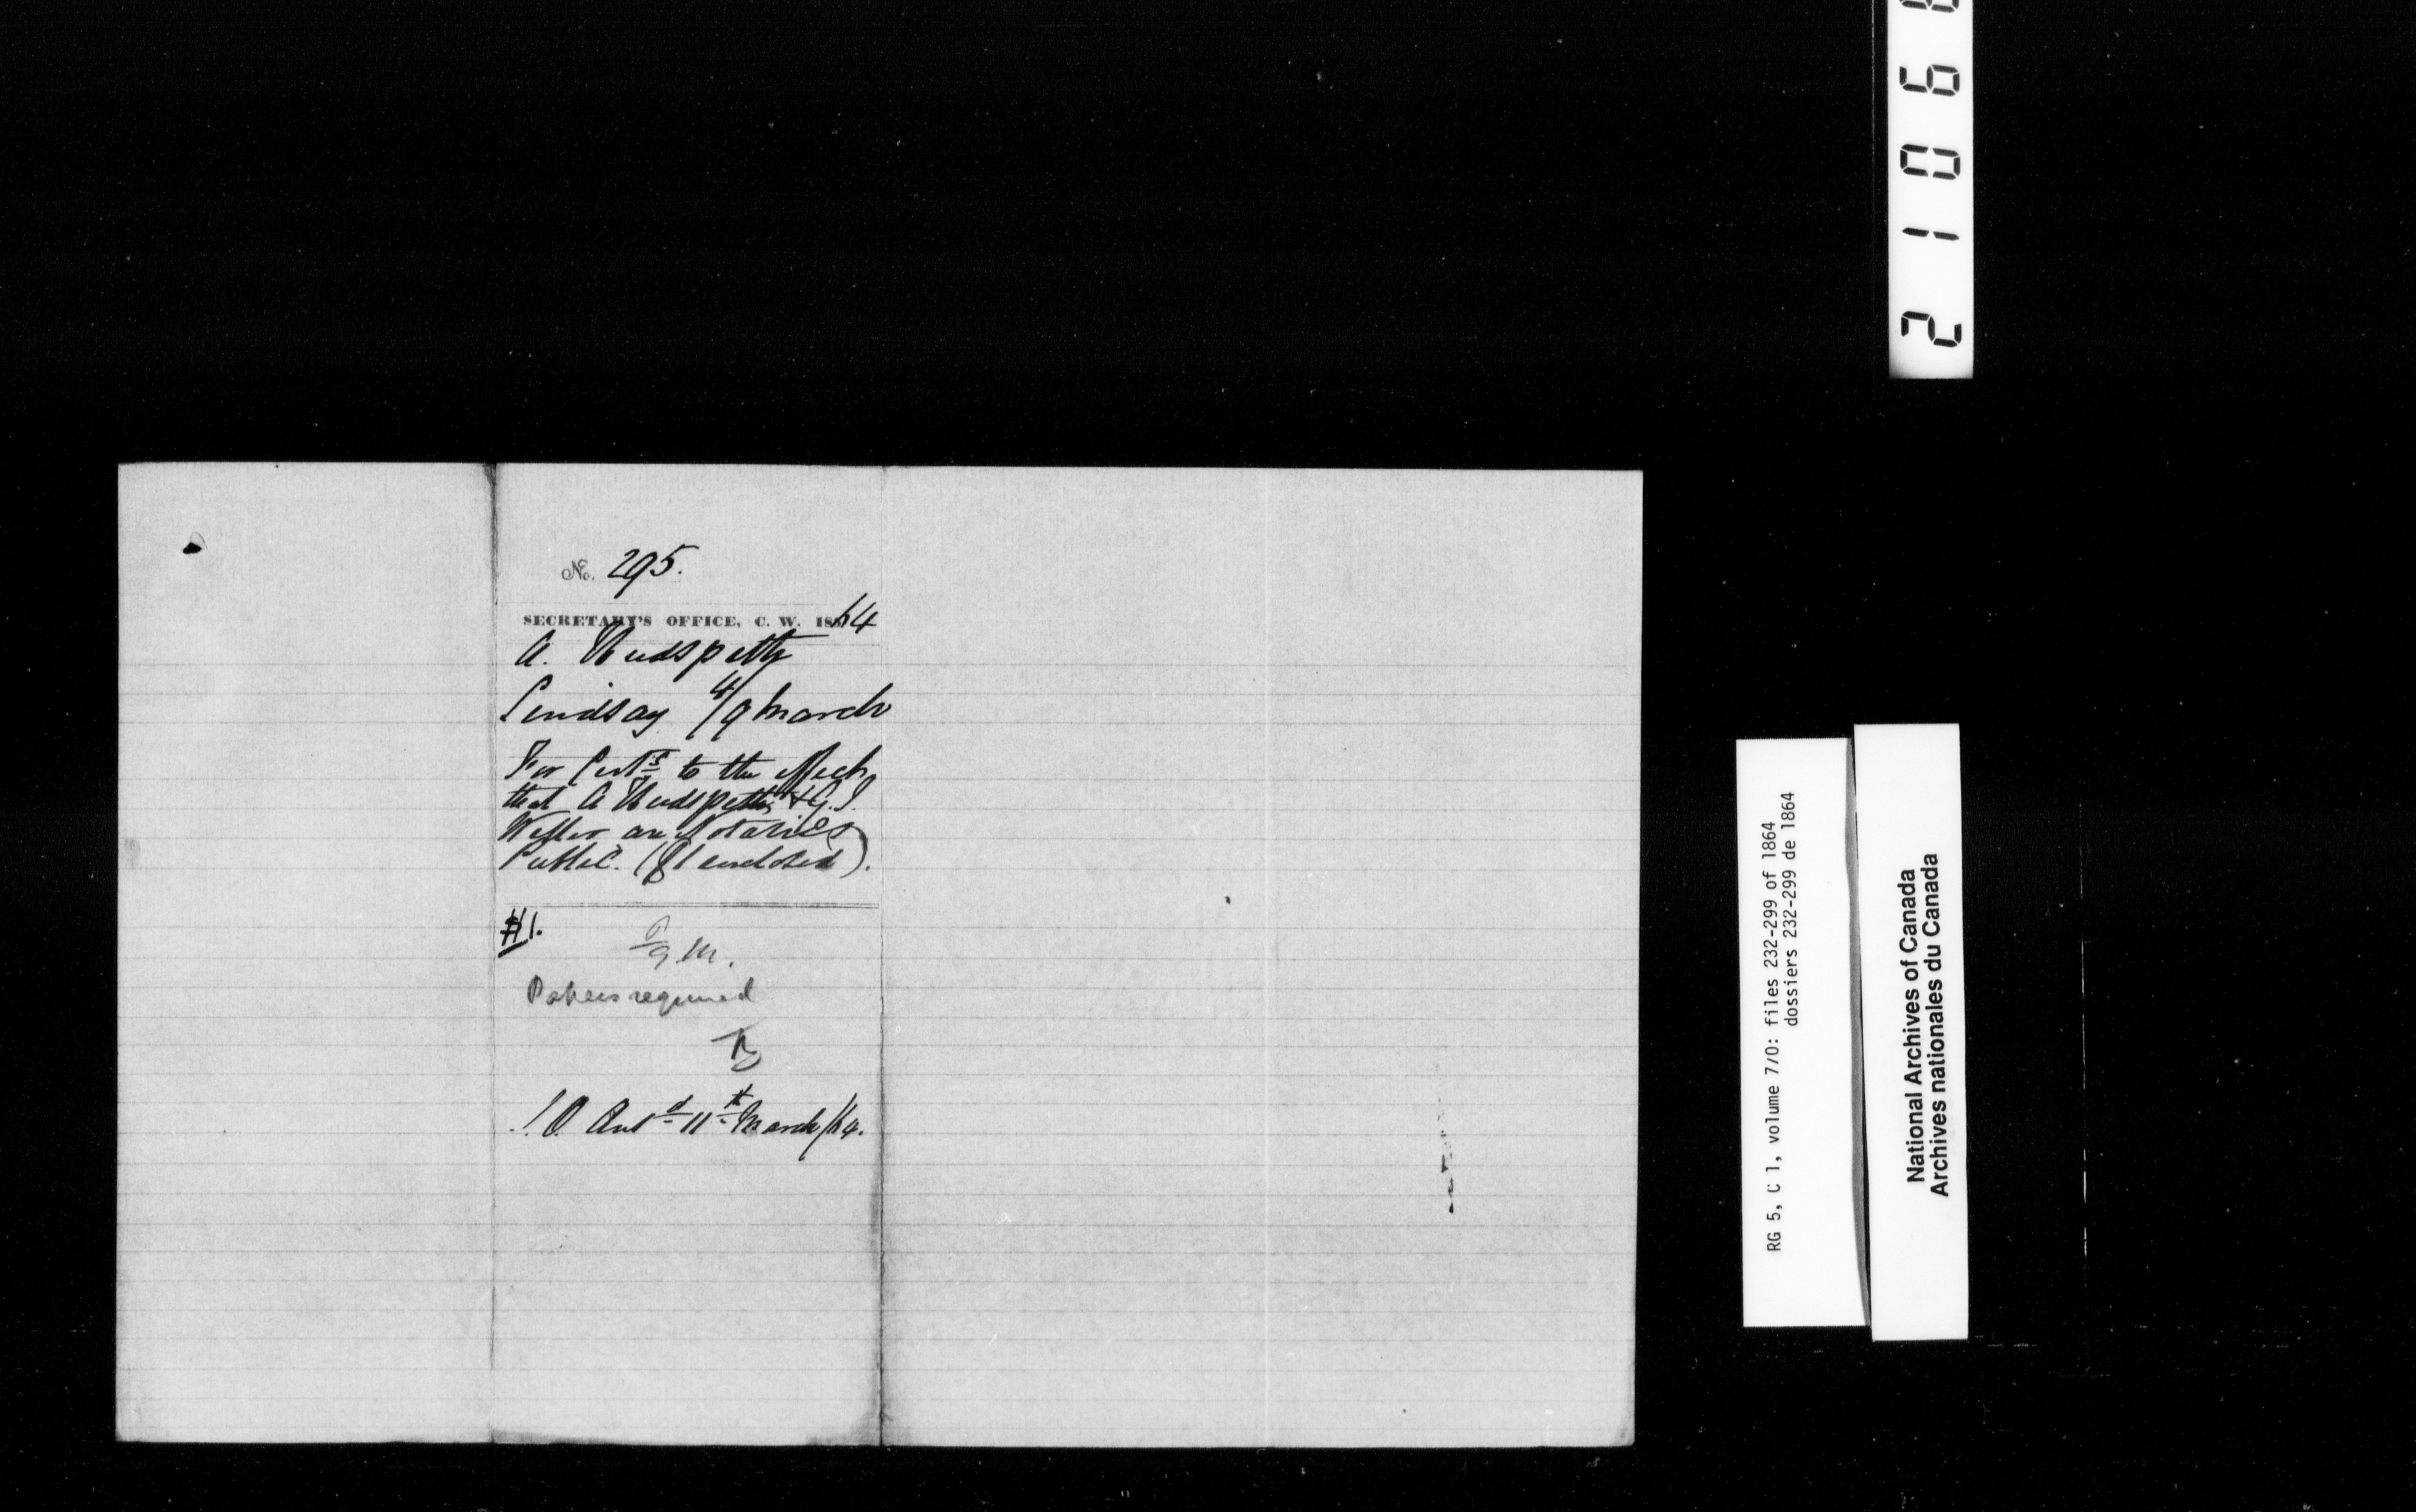 No. 295.
SECRETARY'S OFFICE, C. W. 1864
A. Hudspeth
Lindsay 4/9 March
For Certs to the effect
that A Hudspeth & G. I.
Weller are Notaries
Public. ($1 enclosed).
$1.
9 M.
Papers required
Ansd 11th March/64.
RG 5, C 1, volume 770: files 232-299 of 1864
dossiers 232-299 de 1864
National Archives of Canada
Archives nationales du Canada
2 1 0 6